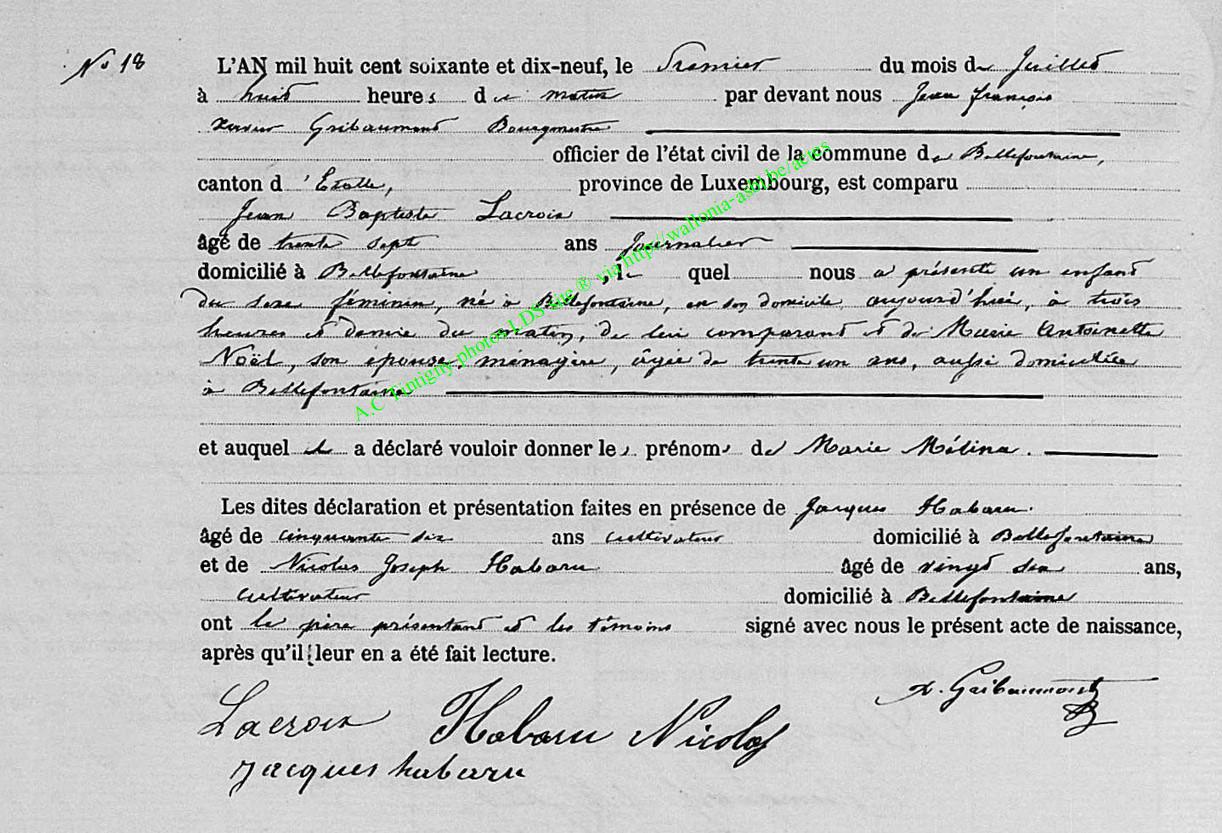 No 18
L'AN mil huit cent soixante et dix-neuf, le Premier du mois de Juillet
à huit heures du matin par devant nous Jean François
Xavier Gribaumont Bourgmestre
officier de l'état civil de la commune de Bellefontaine,
canton d'Etalle, province de Luxembourg, est comparu
Jean Baptiste Lacroix
âgé de trente sept ans Journalier
domicilié à Bellefontaine, le quel nous a présenté un enfant
du sexe féminin, né à Bellefontaine, en son domicile aujourd'hui, à trois
heures et demie du matin, de lui comparant et de Marie Antoinette
Noël, son épouse, ménagère, âgée de trente un ans, aussi domiciliée
à Bellefontaine
et auquel il a déclaré vouloir donner les prénoms de Marie Mélina.
Les dites déclaration et présentation faites en présence de Jacques Habaru
âgé de cinquante six ans cultivateur domicilié à Bellefontaine
et de Nicolas Joseph Habaru âgé de vingt six ans,
cultivateur domicilié à Bellefontaine
ont le père présentant et les témoins signé avec nous le présent acte de naissance,
après qu'il leur en a été fait lecture.
X. Gribaumont
Lacroix Habaru Nicolas
Jacques habaru
A.C Tintigny photos LDS site ® via http://wallonia-asbl.be/actes